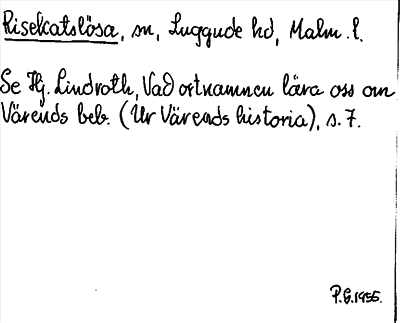 Risekatslösa, sn, Luggude hd, Malm. l.
Se Hj. Lindroth, Vad ortnamnen lära oss om
Värends beb. (Ur Värends historia), s. 7.
P.G. 1955.